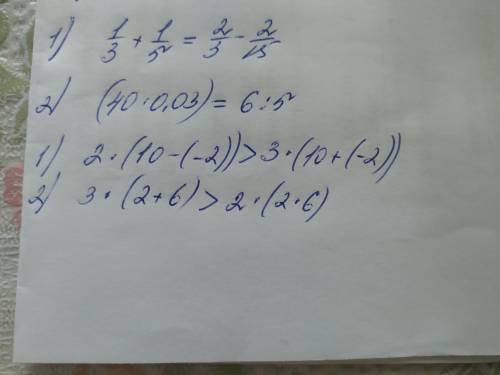 1) 1/3 + 1/5 = 2/3 - 2/15
2) (40·0,03) = 6:5
1) 2·(10-(-2)) > 3·(10+(-2))
2) 3·(2+6) > 2·(2·6)